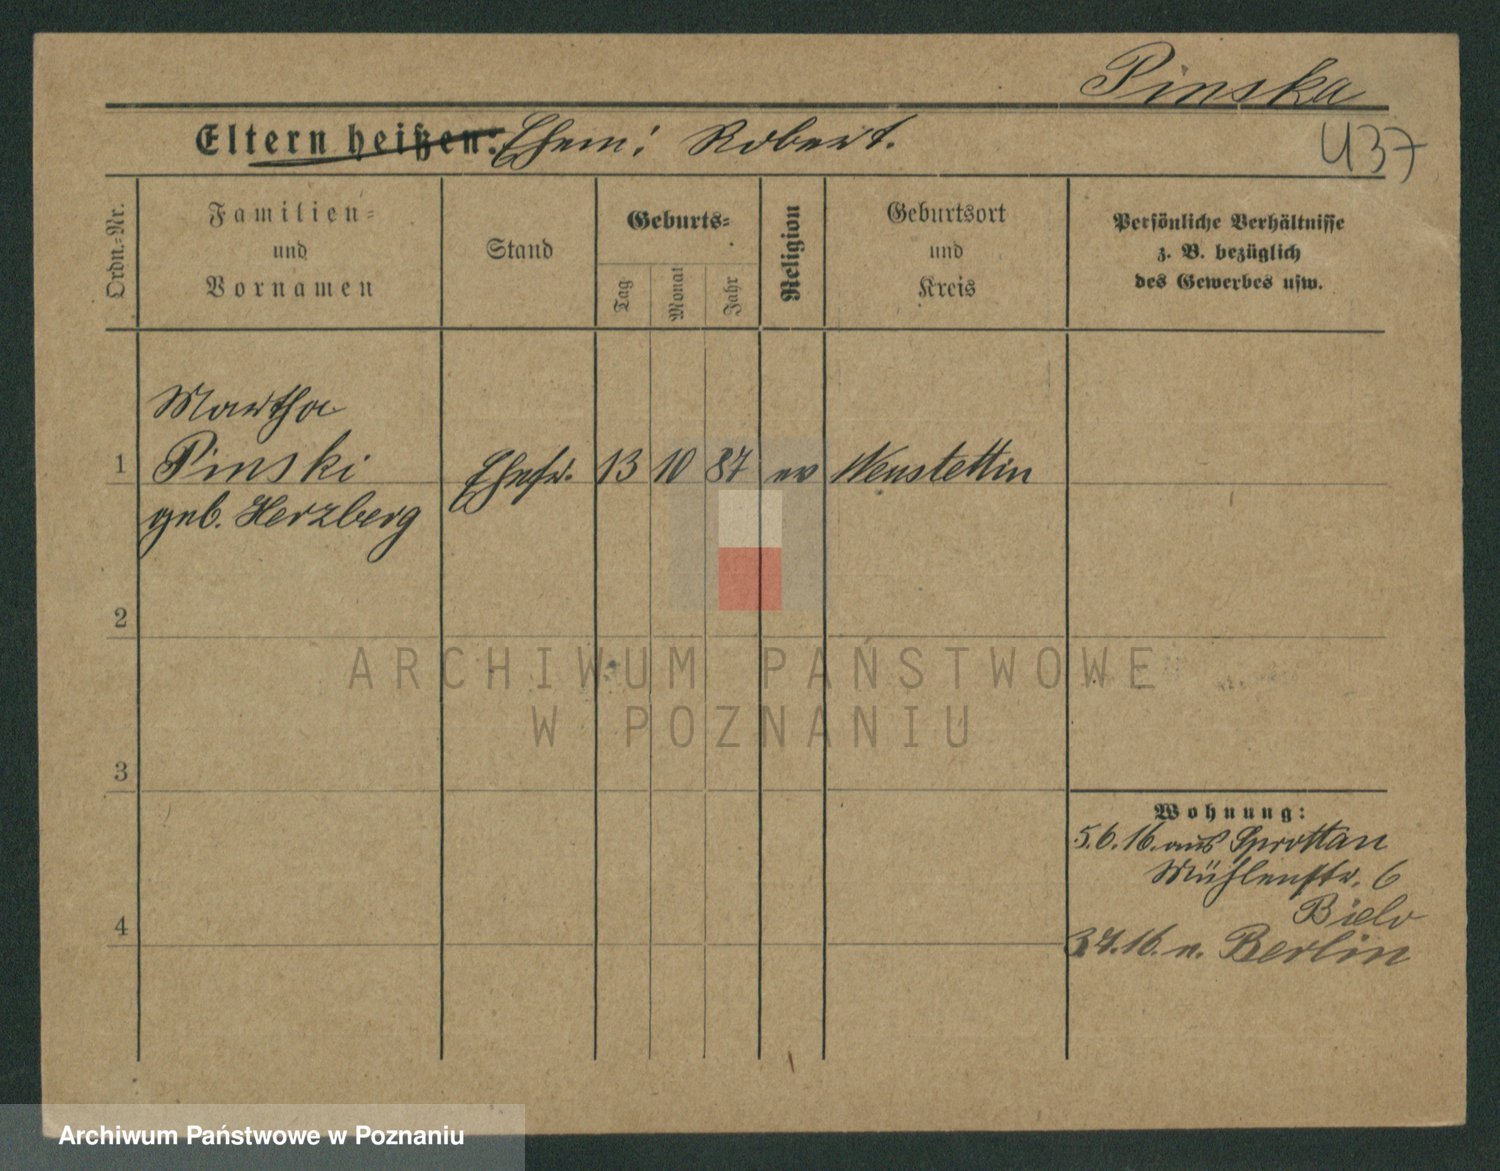 Pinska
437
Eltern heißen: Ehem: Robert.
Ordn.-Nr.
Familien-
und
Vornamen
Stand
Geburts-
Tag
Monat
Jahr
Religion
Geburtsort
und
Kreis
Persönliche Verhältnisse
z. B. bezüglich
des Gewerbes usw.
Martha
1 Pinski Ehefr. 13 10 87 ev Neustettin
geb. Herzberg
2
ARCHIWUM PAŃSTWOWE
W POZNANIU
3
Wohnung:
5.6.16. aus Sprottau
Mühlenstr. 6
Bielo
4
3.7.16. n. Berlin
Archiwum Państwowe w Poznaniu